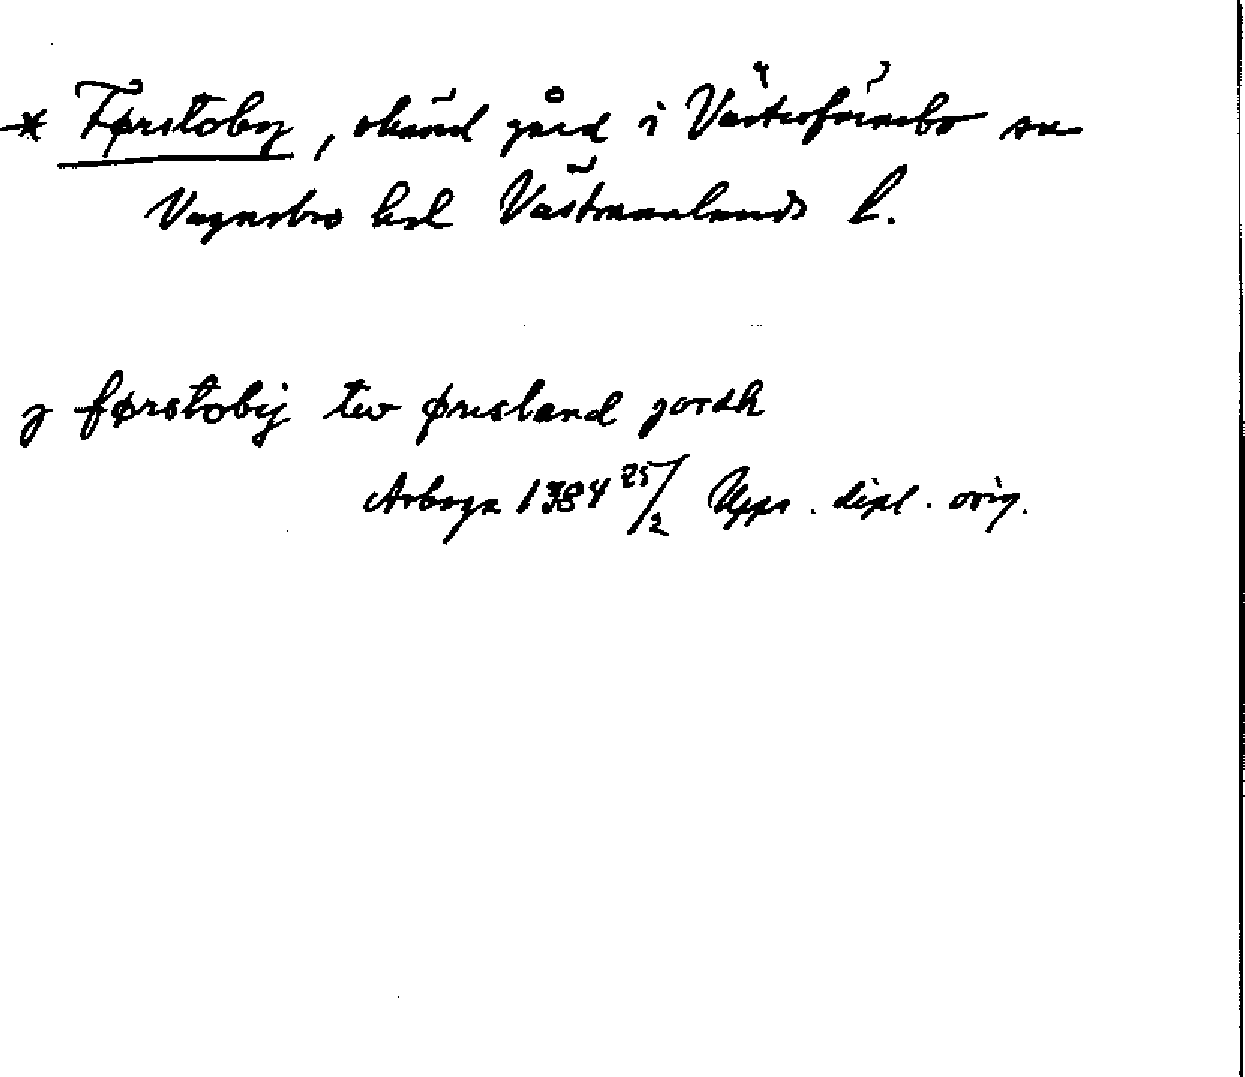 * Førstoby, okänd gård i Västerfärnebo sn
Vagnsbro hd Västmanlands l.
j førstobij tw øresland jordh
Arboga 1384 25/2 Upps. dipl. orig.